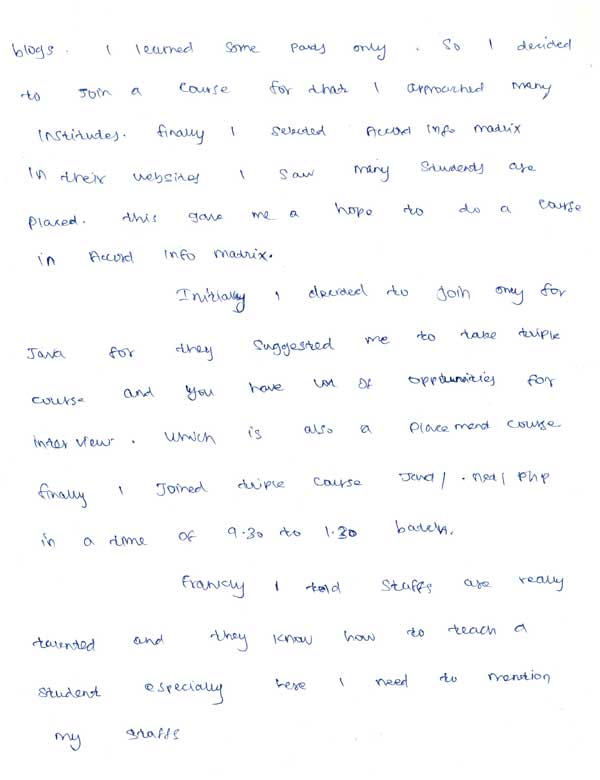 blogs. I learned some parts only. So I decided
to Join a course for that I approached many
institutes. finally I selected Accord Info matrix
In their websites I saw many students are
Placed. this gave me a hope to do a course
in Accord Info matrix.
Initially I decided to join only for
Java for they suggested me to take triple
course and you have lot of opportunities for
interview. which is also a Placement course
finally I Joined triple course Java/ .net/ PHP
in a time of 9.30 to 1.30 batch.
Frankly I told staffs are really
talented and they know how to teach a
student especially here I need to mention
my staffs